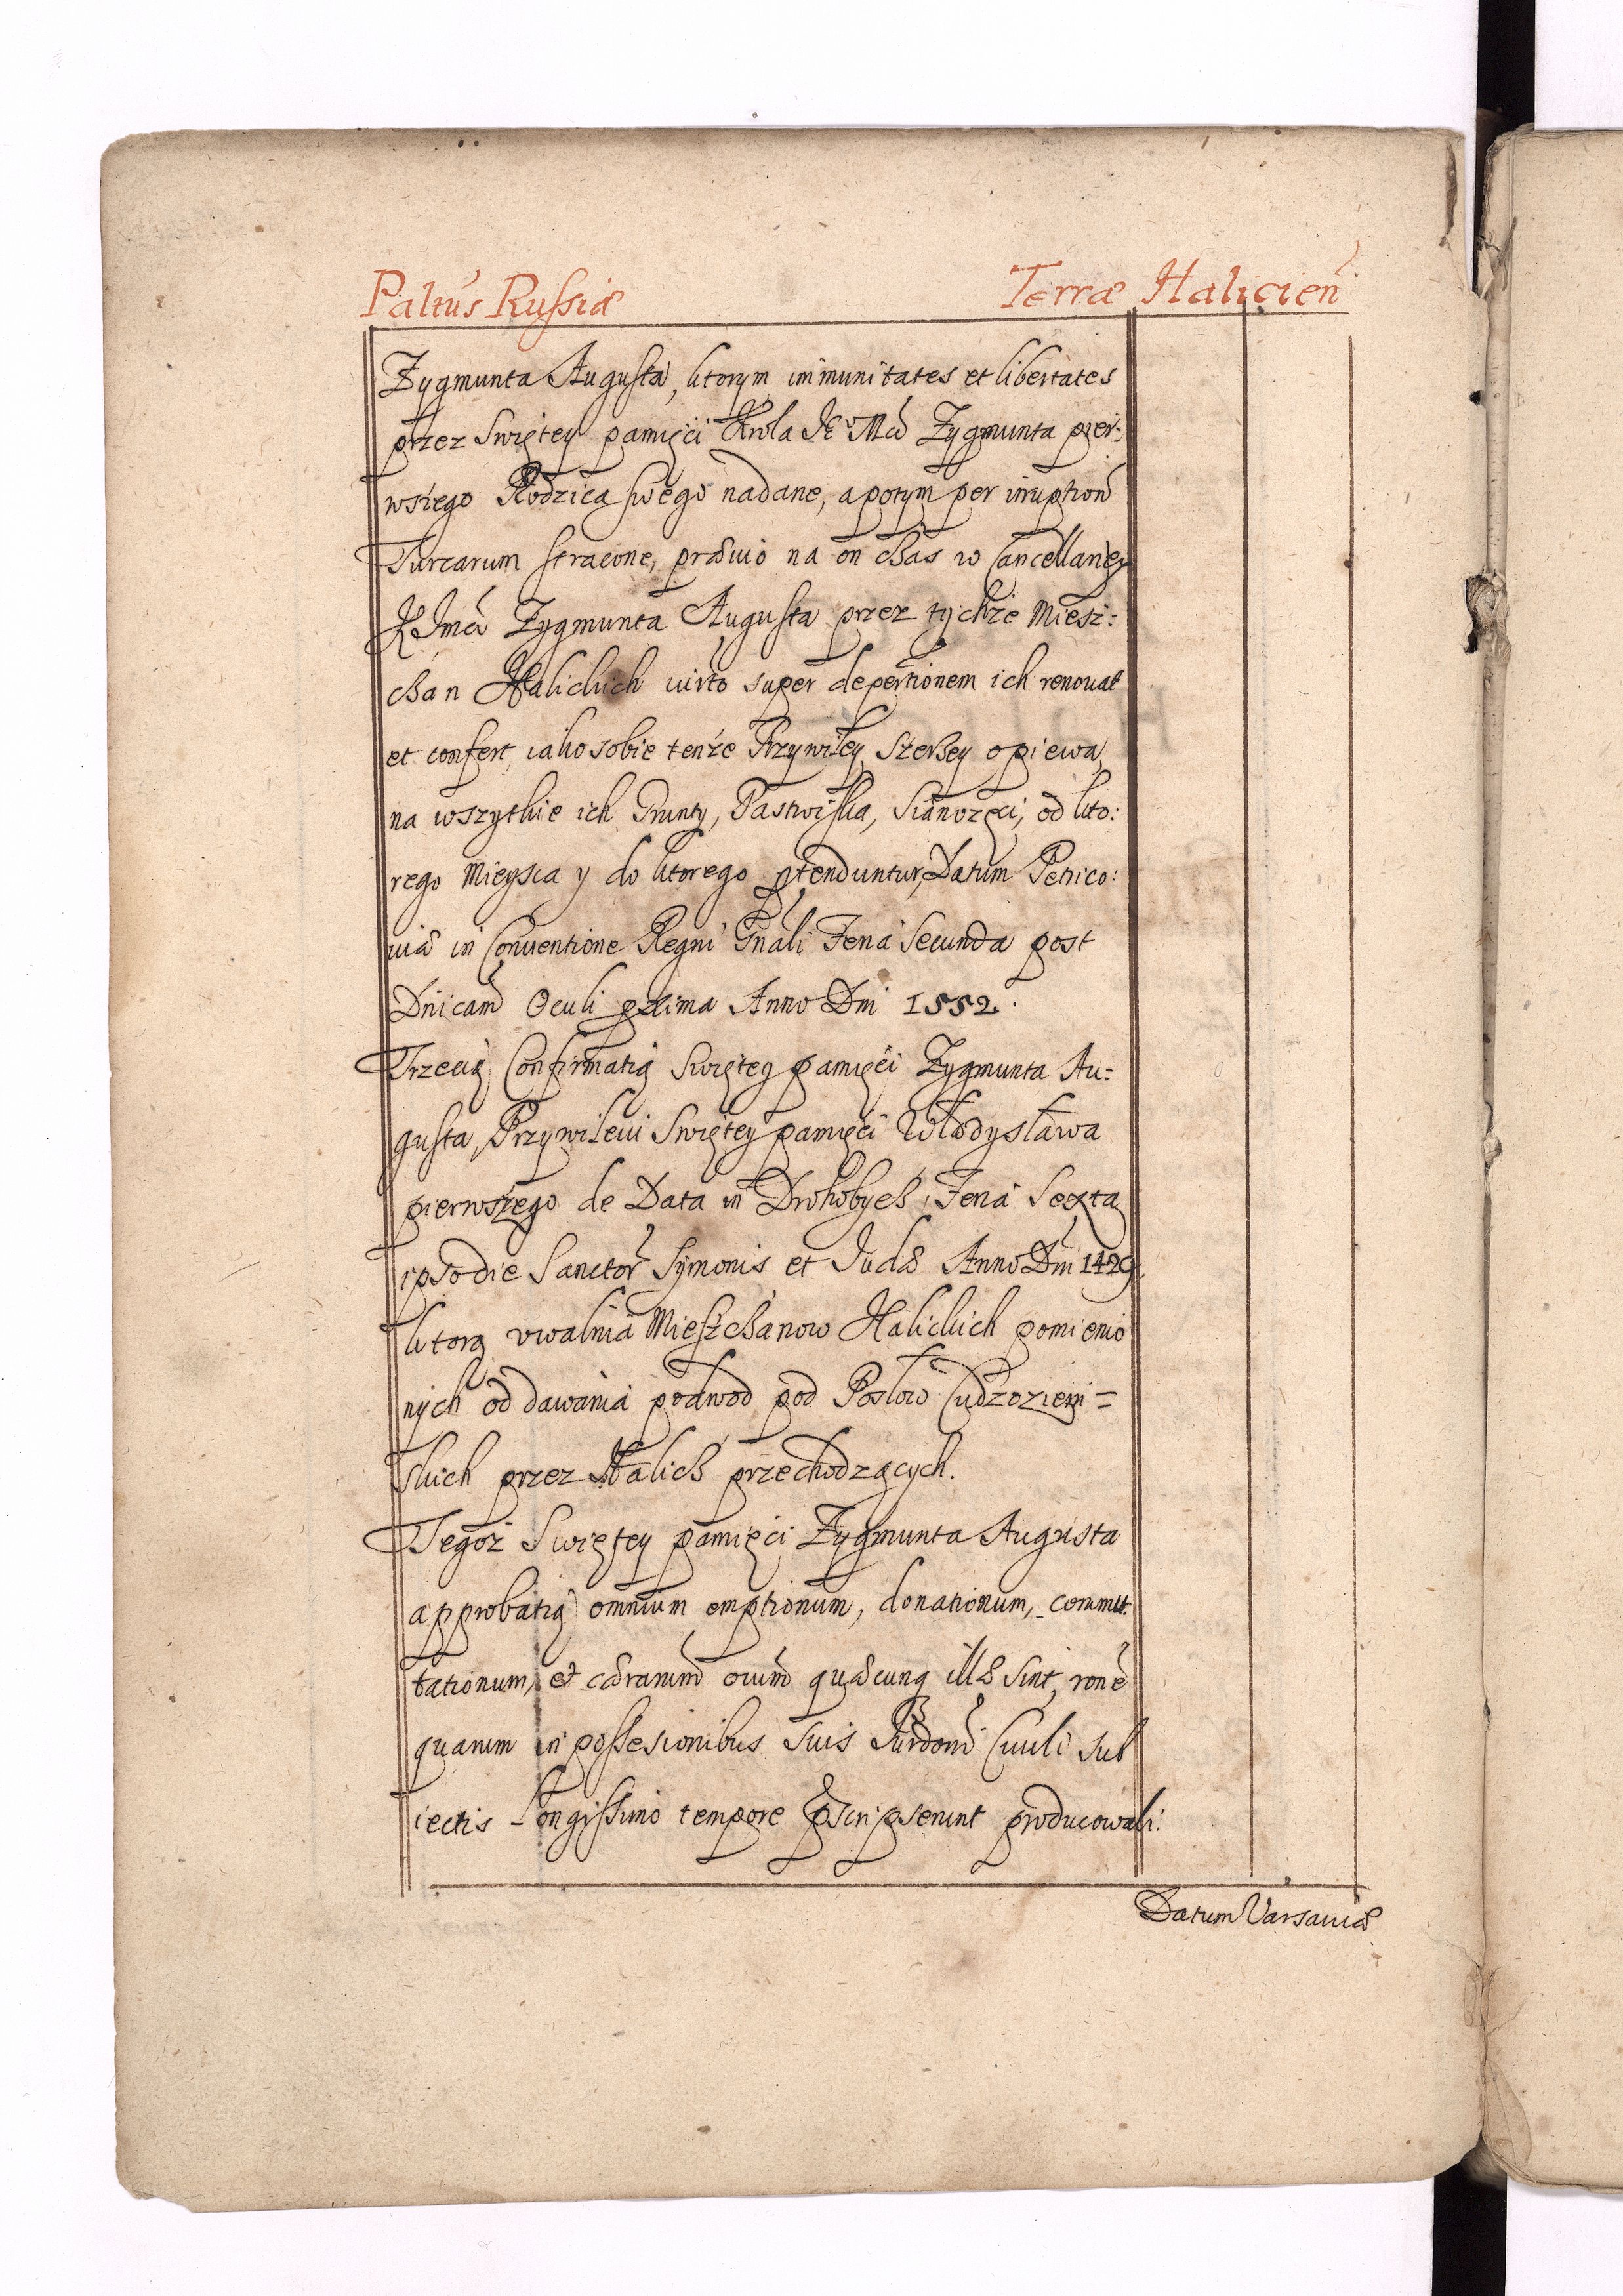 Paltus Russiæ Terræ Halicien
Zygmunta Augusta, ktorym immunitates et libertates
przez Swiętey pamięci Krola JE° Mći Zygmunta pier:
wsiego Rodzica swego nadane, a potym per irruptionē
Turcarum stracone, præuio na on cżas w Cancellariey
K Jmći Zygmunta Augusta przez tychże Miesż:
cżan Halickich iurto super depertionem ich renouat
et confert, iako sobie tenże Przywiley szerzey opiewa,
na wszytkie ich Grunty, Pastwiska, Sianożęci, od kto:
rego Mieysca y do ktorego ptenduntur, Datum Petrico:
uiæ in Conuentione Regni Gnāli Feria Secunda post
Dnicam Oculi proxima Anno Dni 1552.
Trzecią Confirmatią Swiętey pamięci Zygmunta Au:
gusta, Przywileiu Swiętey pamięci Włodysława
pierwszego de Data in Drohobycż, Feria Sexta
ipso die Sanctor Symonis et Judæ Anno Dni 1429
ktorą vwalnia Miesżcżanow Halickich pomienio
nych od dawania podwod pod Posłow Cudzoziem=
skich przez Halicż przechodzących.
Tegoż Swiętey pamięci Zygmunta Augusta
approbatią omnium emptionum, donationum, commu
tationum, et cæterarum oium quæcunq illæ sint, ronē
quarum in possesionibus suis Jurdoni Ciuili sub
iectis Longissimo tempore pscripserunt producowali:
Datum Varsauiæ